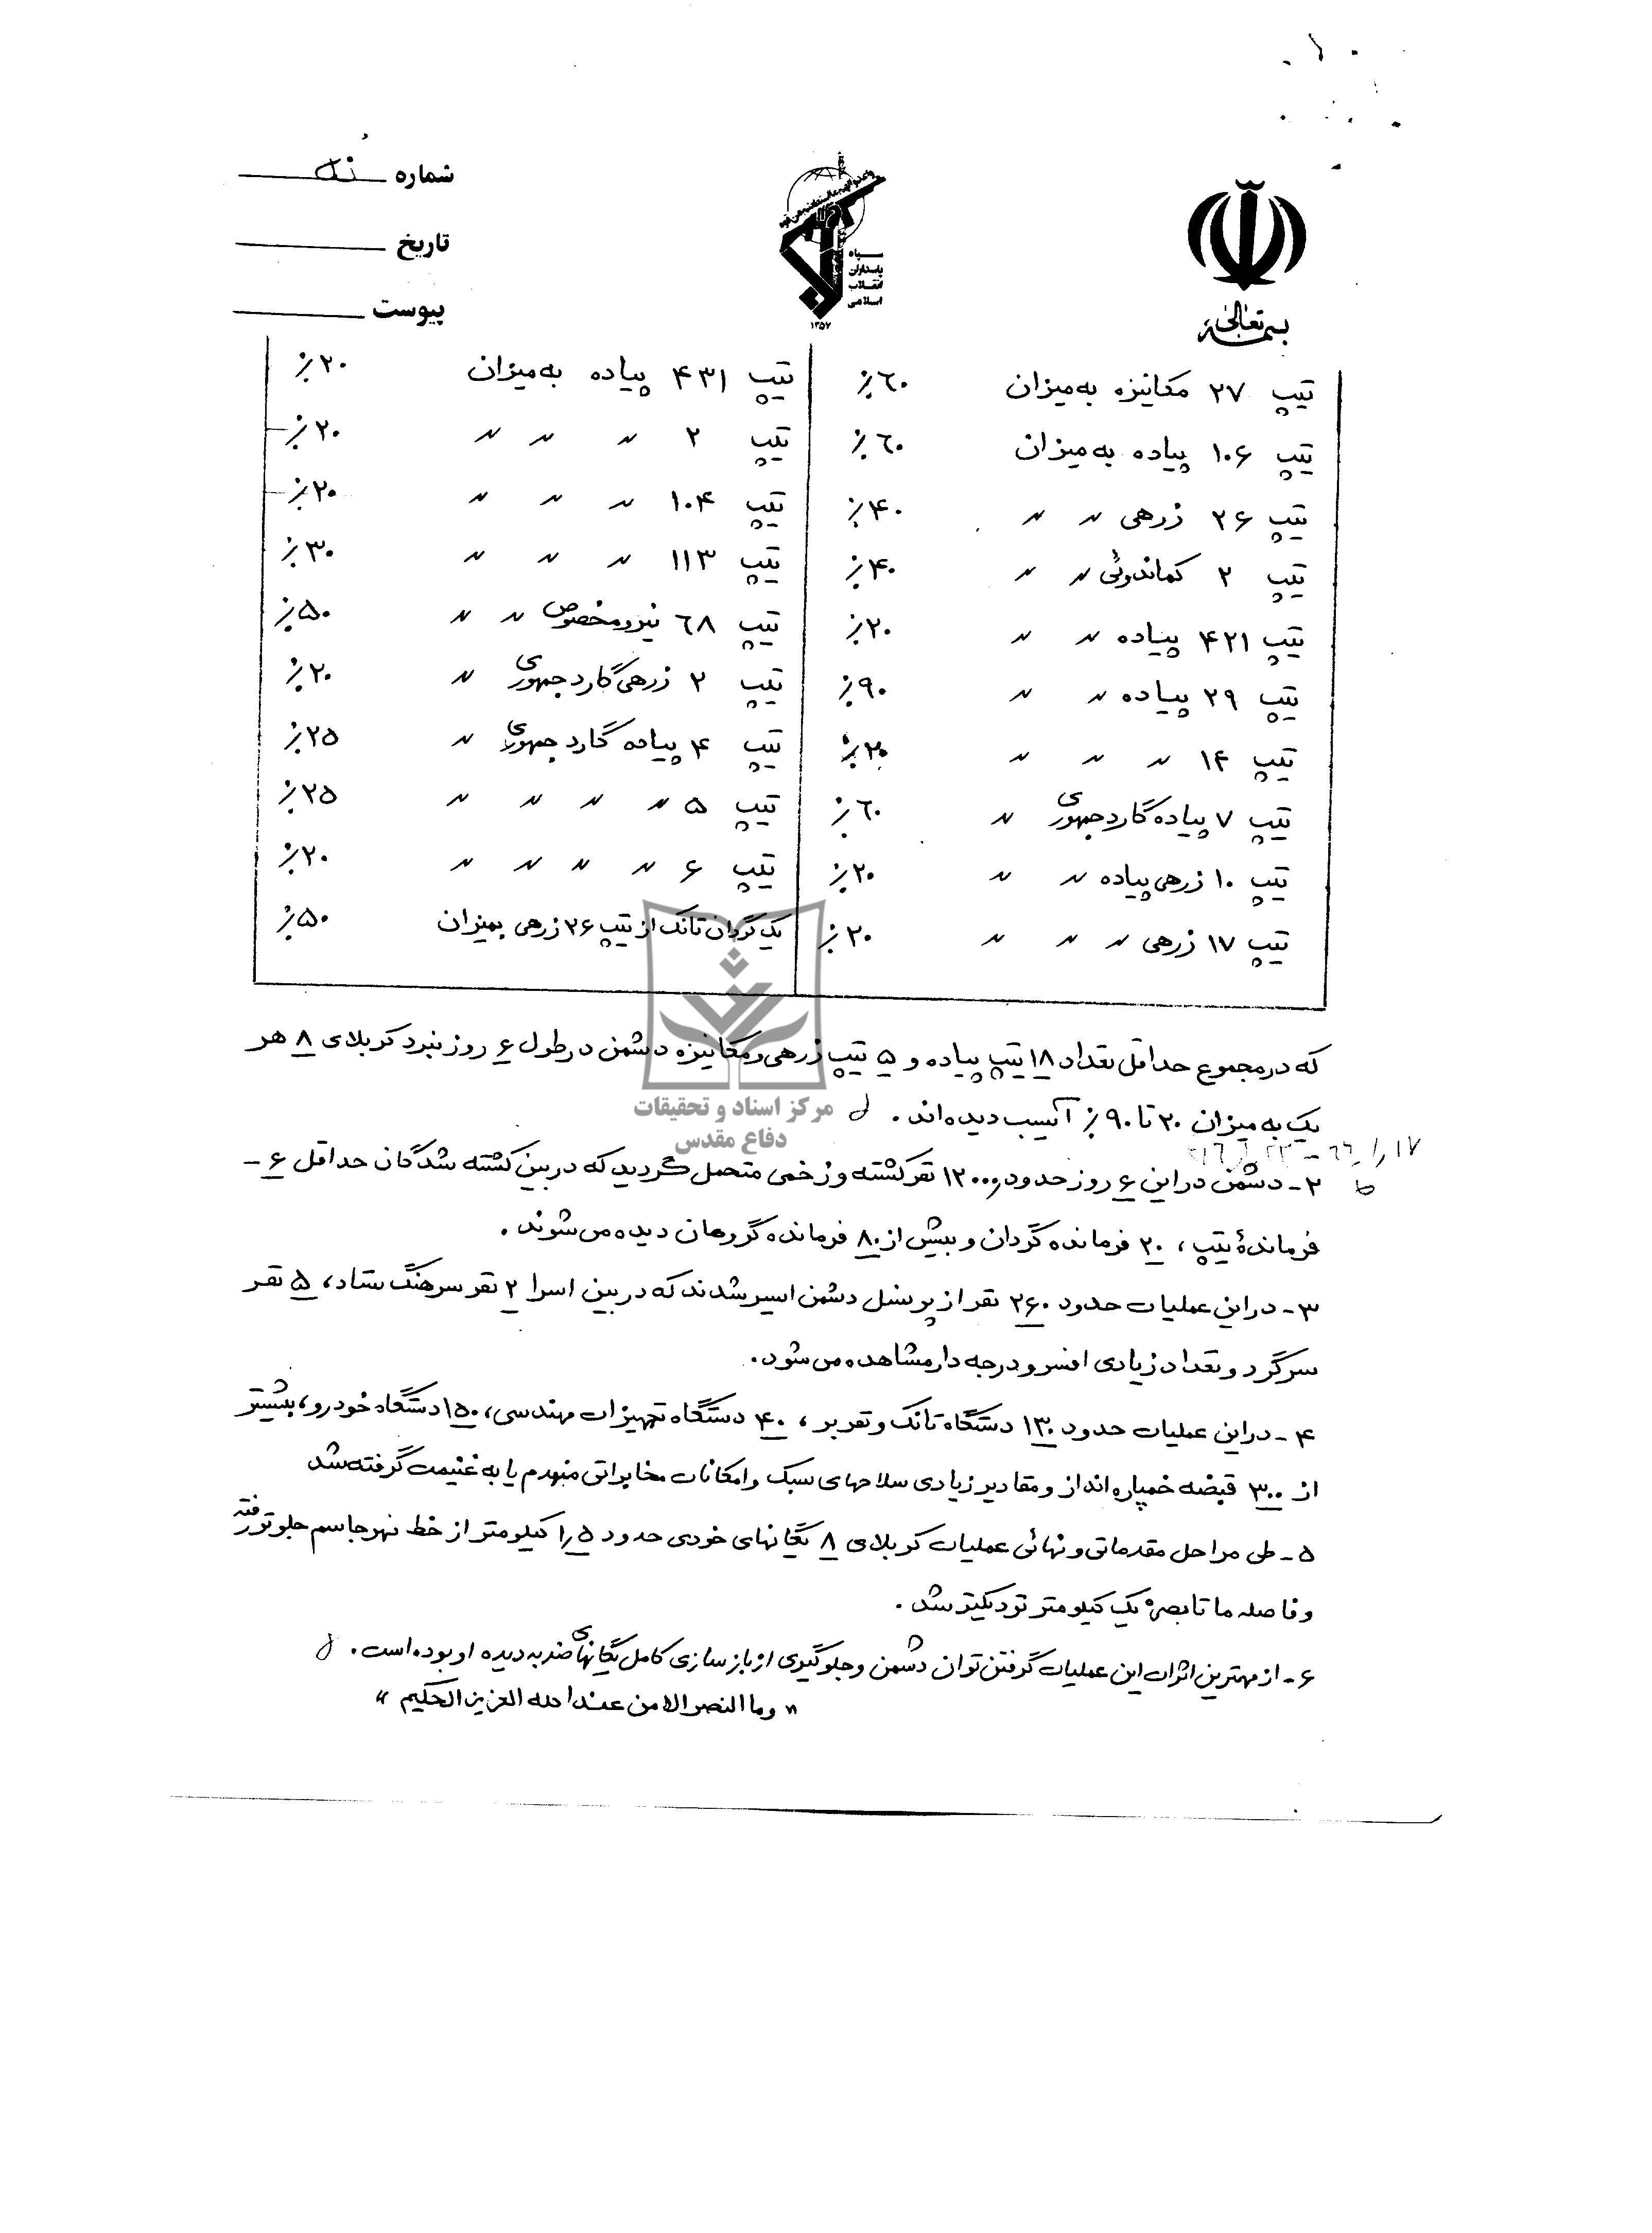 شماره
تاریخ
پیوست
سپاه
پاسداران
انقلاب
اسلامی
۱۳۵۷
بسمه تعالی
تیپ ۲۷ مکانیزه به میزان ۶۰٪
تیپ ۱۰۶ پیاده به میزان ۶۰٪
تیپ ۲۶ زرهی " " ۴۰٪
تیپ ۲ کماندوئی " " ۴۰٪
تیپ ۴۲۱ پیاده " " ۲۰٪
تیپ ۲۹ پیاده " " ۹۰٪
تیپ ۱۴ " " " ۲۰٪
تیپ ۷ پیاده گارد جمهوری " ۶۰٪
تیپ ۱۰ زرهی پیاده " " ۲۰٪
تیپ ۱۷ زرهی " " " ۲۰٪
تیپ ۴۳۱ پیاده به میزان ۲۰٪
تیپ ۲ " " " ۲۰٪
تیپ ۱۰۴ " " " ۲۰٪
تیپ ۱۱۳ " " " ۳۰٪
تیپ ۶۸ نیرو مخصوص " " ۵۰٪
تیپ ۲ زرهی گارد جمهوری " ۲۰٪
تیپ ۴ پیاده گارد جمهوری " ۲۵٪
تیپ ۵ " " " " ۲۵٪
تیپ ۶ " " " " ۲۰٪
یک گردان تانک از تیپ ۲۶ زرهی بمیزان ۵۰٪
که در مجموع حداقل تعداد ۱۸ تیپ پیاده و ۵ تیپ زرهی و مکانیزه دشمن در طول ۶ روز نبرد کربلای ۸ هر
یک به میزان ۲۰ تا ۹۰٪ آسیب دیده‌اند.
۲- دشمن در این ۶ روز حدود ۱۲۰۰۰ نفر کشته و زخمی متحمل گردید که در بین کشته شدگان حداقل ۶-
فرماندهٔ تیپ، ۲۰ فرمانده گردان و بیش از ۸۰ فرمانده گروهان دیده می‌شوند.
۳- در این عملیات حدود ۲۶۰ نفر از پرسنل دشمن اسیر شدند که در بین اسرا ۲ نفر سرهنگ ستاد، ۵ نفر
سرگرد و تعداد زیادی افسر و درجه دار مشاهده می‌شود.
۴- در این عملیات حدود ۱۳۰ دستگاه تانک و نفربر، ۴۰ دستگاه تجهیزات مهندسی، ۱۵۰ دستگاه خودرو، بیشتر
از ۳۰۰ قبضه خمپاره‌انداز و مقادیر زیادی سلاحهای سبک و امکانات مخابراتی منهدم یا به غنیمت گرفته شد
۵- طی مراحل مقدماتی و نهائی عملیات کربلای ۸ یگانهای خودی حدود ۱٫۵ کیلومتر از خط نهر جاسم جلوتر رفته
و فاصله ما تا بصره یک کیلومتر نزدیکتر شد.
۶- از مهمترین اثرات این عملیات گرفتن توان دشمن و جلوگیری از بازسازی کامل یگانهای ضربه دیده او بوده است.
" وما النصر الا من عند الله العزیز الحکیم "
مرکز اسناد و تحقیقات
دفاع مقدس